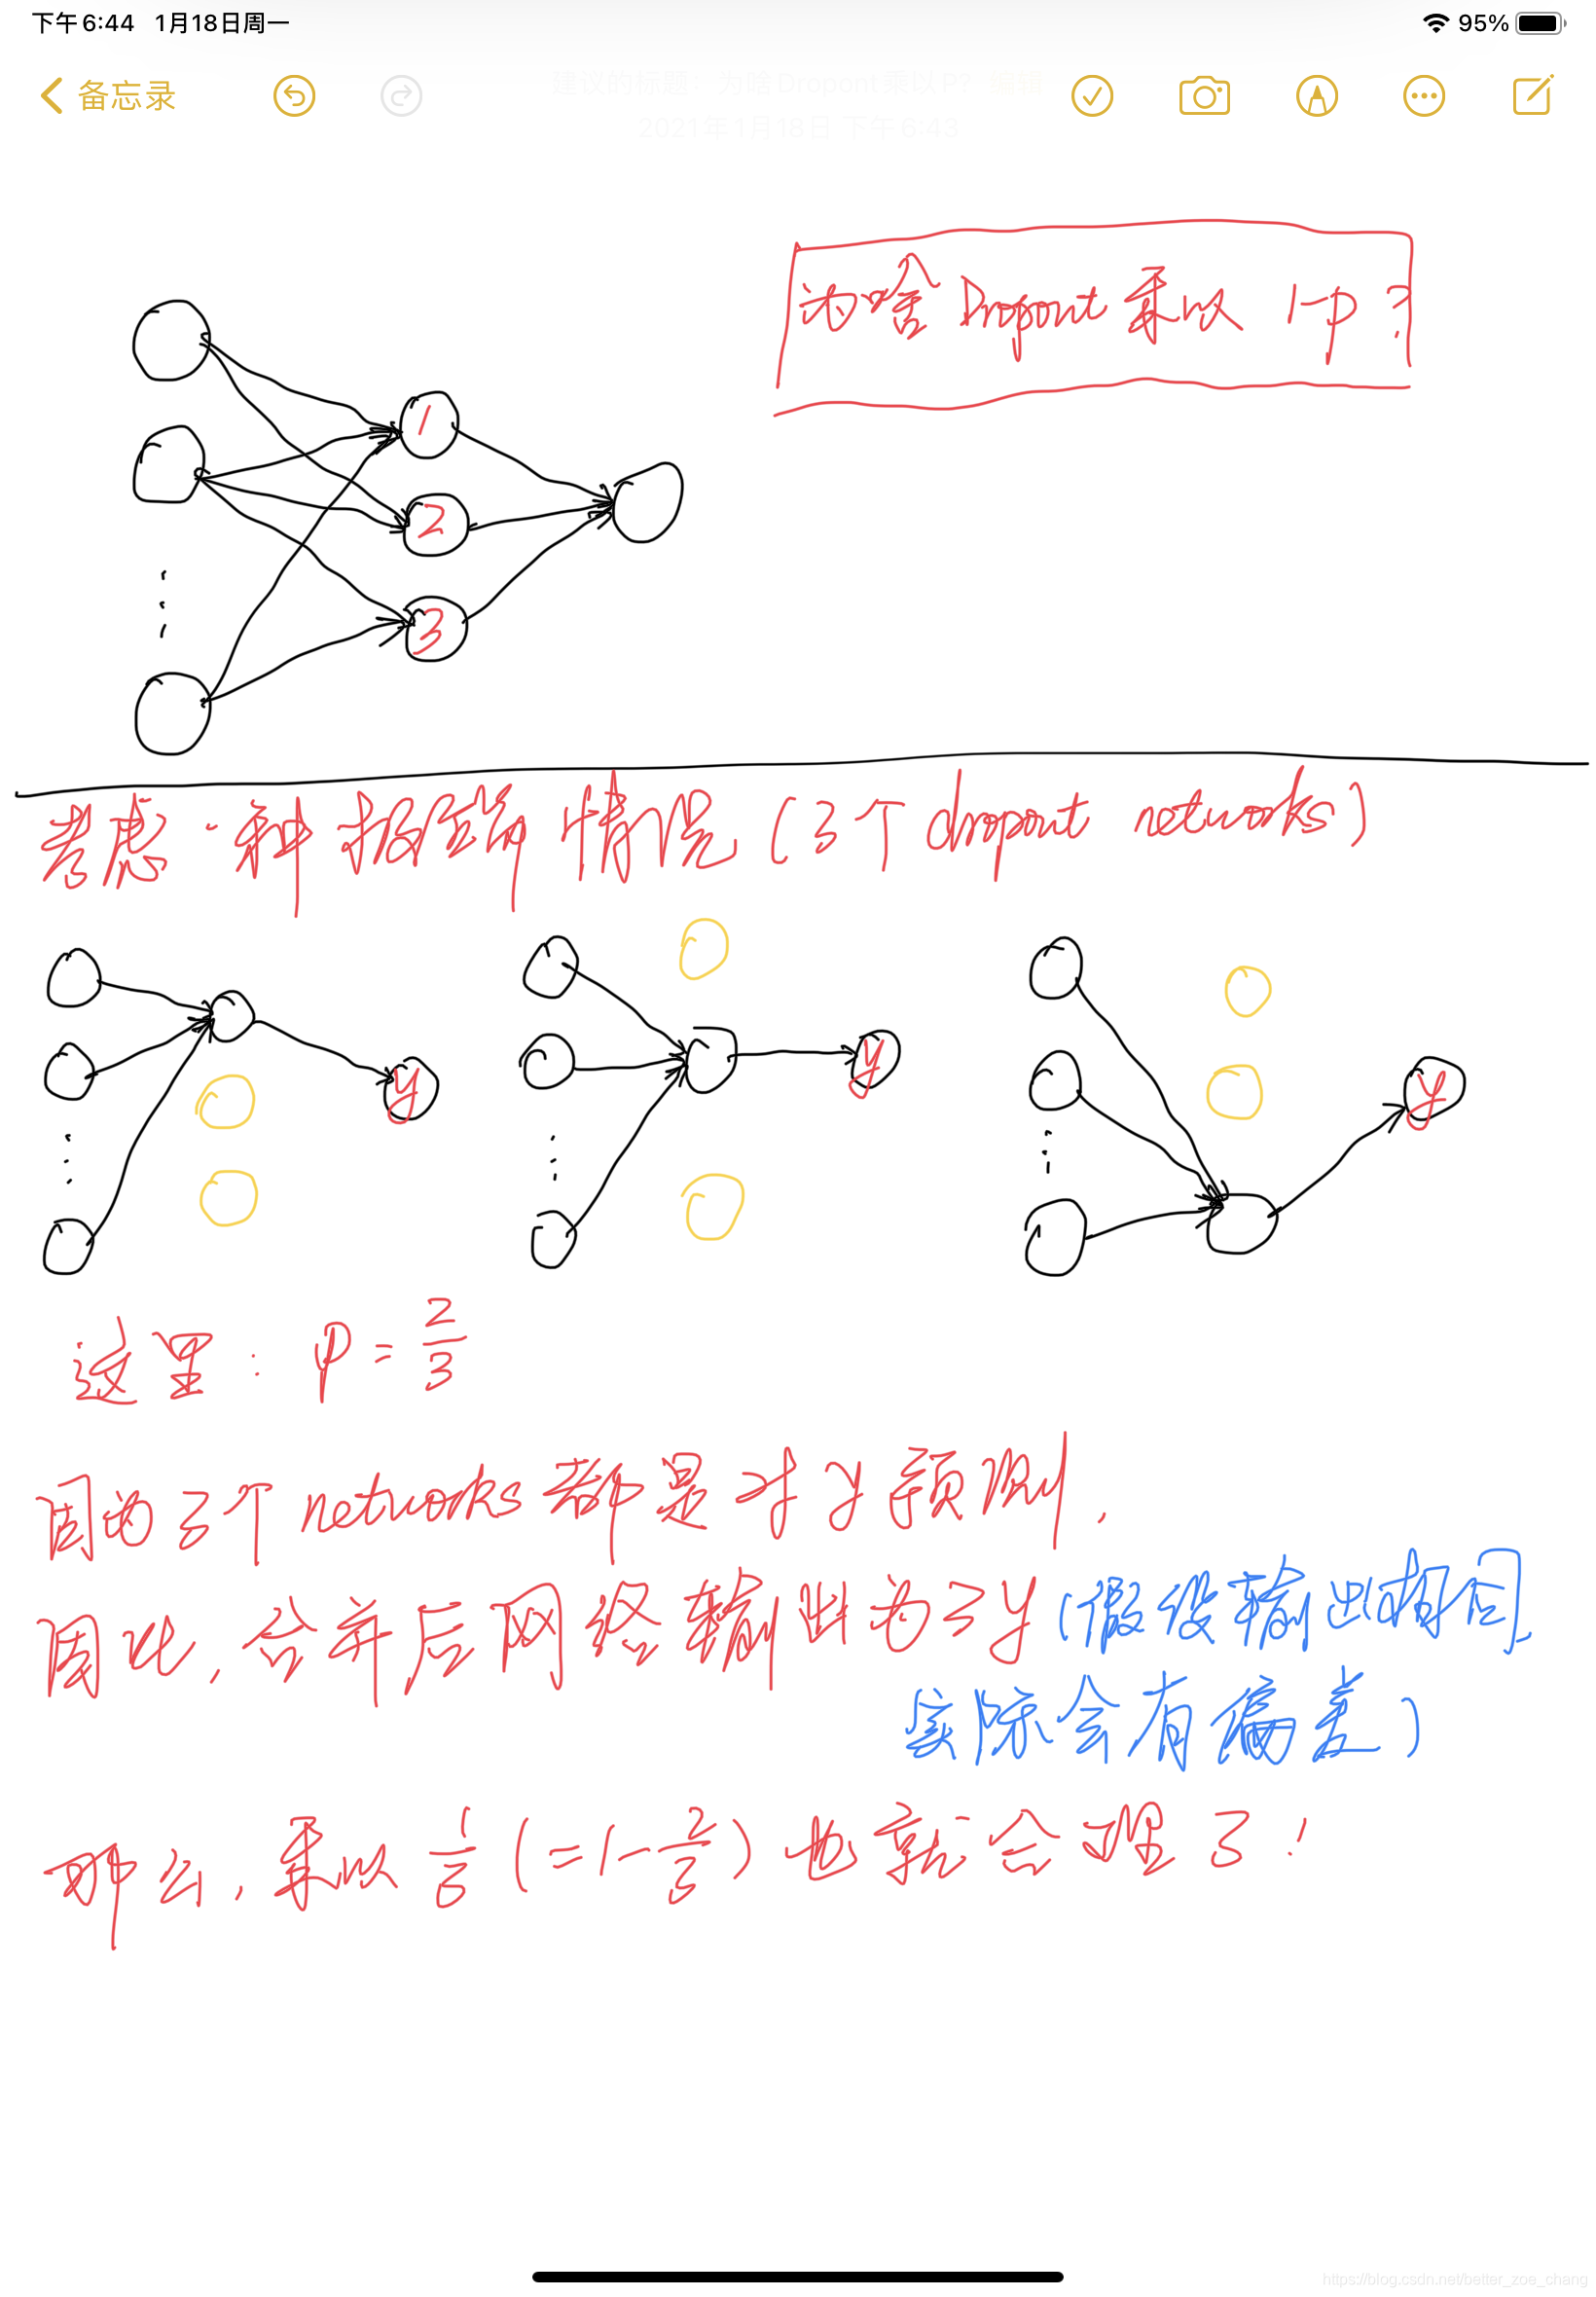 下午6:44 1月18日周一
95%
备忘录
建议的标题:为啥Dropont乘以P? 编辑
2021年1月18日 下午6:43
为啥 Dropout 乘以 1-p ?
1
2
3
考虑一种极端情况(3个 dropout networks)
y y y
这里: p = 2/3
因为3个networks都是对y预测,
因此,合并后网络输出为3y(假设输出相同,
实际会有偏差)
那么,乘以 1/3 (=1-2/3) 也就合理了!
https://blog.csdn.net/better_zoe_chang